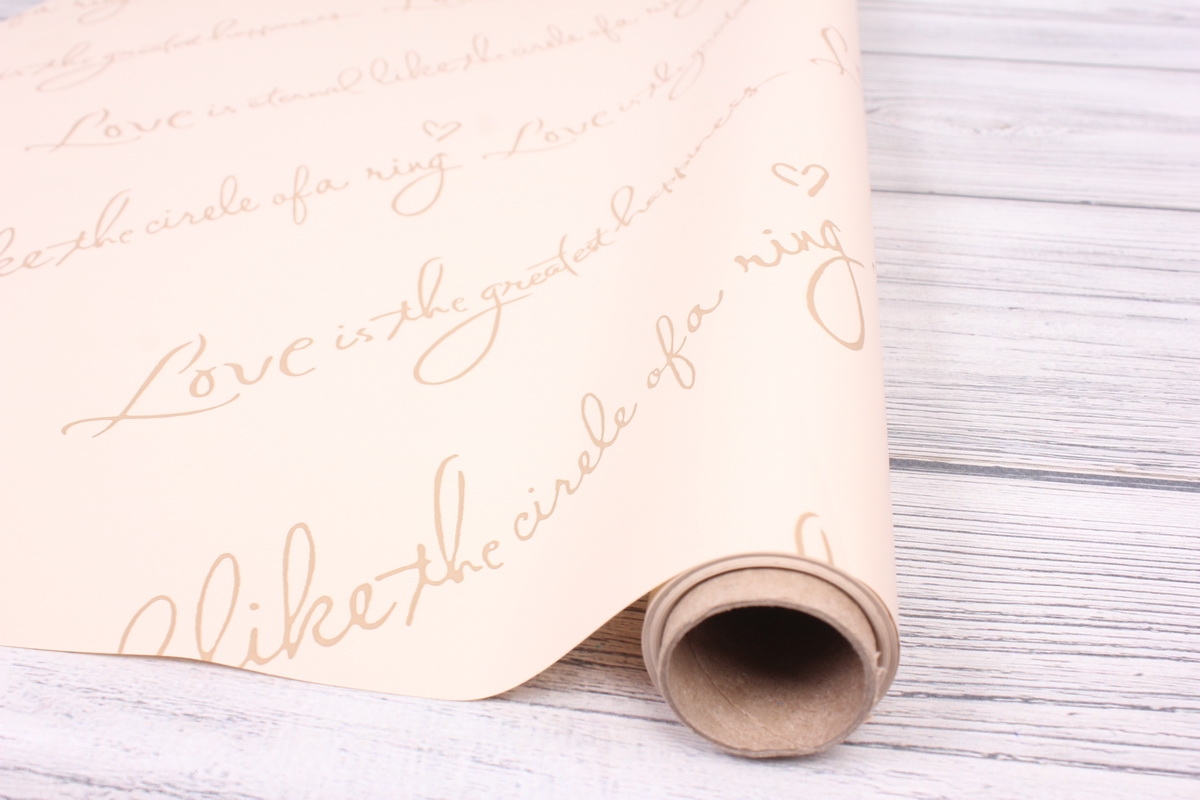 is the greatest happiness
Love is eternal like the circle of a ring
like the circle of a ring Love is the greatest
Love is the greatest happiness
like the circle of a ring